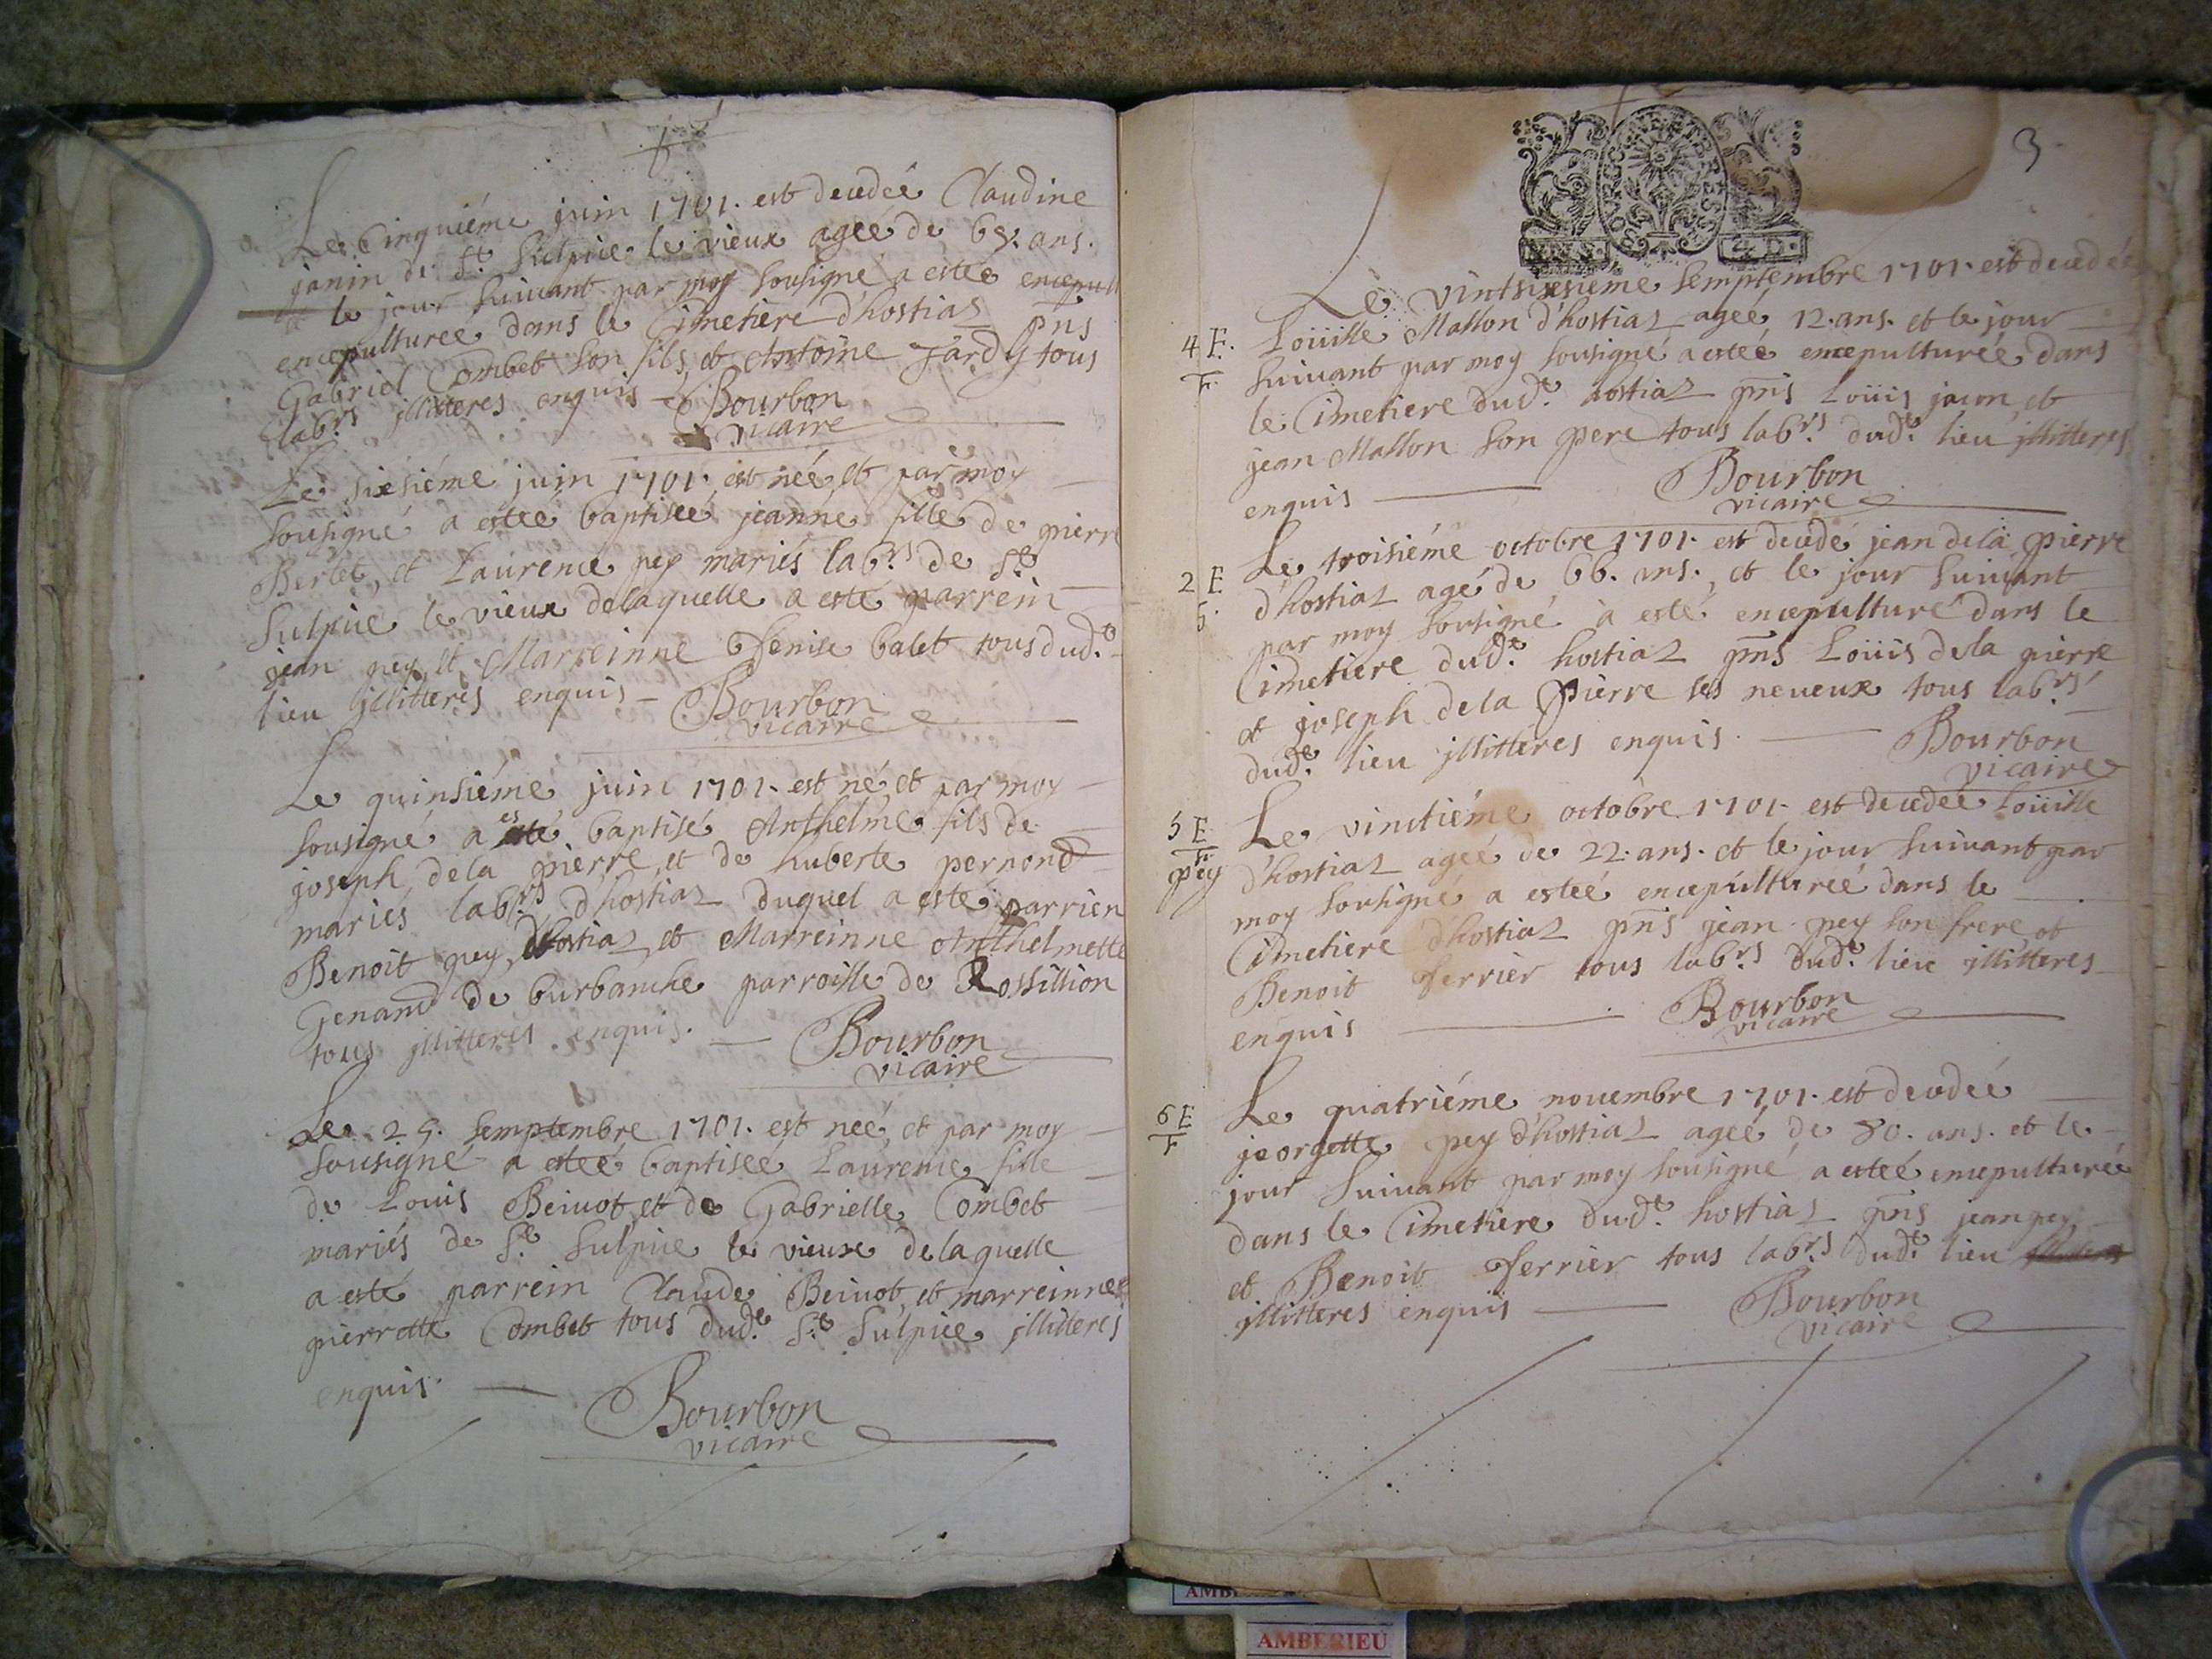 Le Cinquiéme juin 1701. est decedeé Claudine
janin de St. Sulpice le vieux ageé de 68. ans.
le jour suivant par moy sousigné a esteé encepult
encepulturee dans le Cimetiere d'hostiaz pn̄s
Gabriel Combet son fils et Antoine Jardy tous
labrs. jllitteres enquis
Bourbon
vicaire
Le sixsiéme juin 1701. est neé et par moy
sousigné a esteé baptiseé jeanne fille de pierre
Berlet, et Laurence pey mariés labrs. de St.
Sulpice le vieux de laquelle a esté parrein
jean pey et Marreinne Thenise balet tous dudt.
lieu jllitteres enquis - Bourbon
vicaire
Le quinsiéme juin 1701. est né et par moy
sousigné a esté baptisé Anthelme fils de
joseph de la pierre et de huberte pernond
mariés labrs. d'hostiaz duquel a esté parrien
Benoit pey d'hostiaz et Marreinne Anthelmette
Genand de burbanche parroisse de Rossillion
tous jllitteres enquis. - Bourbon
vicaire
Le 25. semptembre 1701. est neé et par moy
sousigné a esteé baptiseé Laurence fille
de Louis Beivot et de Gabrielle Combet
mariés de St. Sulpice le vieux de laquelle
a esté parrein Claude Beivot et marreinne
pierrette Combet tous dudt. St. Sulpice jllitteres
enquis - Bourbon
vicaire
3
Le vintsixsieme semptembre 1701. est decedeé
4 F. Loüille Mallon d'hostiaz ageé 12. ans. et le jour
F. suivant par moy sousigné a esteé encepultureé dans
le Cimetiere dudt. hostiaz pn̄s Loüis jacon et
jean Mallon son pere tous labrs. dudt. lieu jllitteres
enquis - Bourbon
vicaire
Le troisiéme octobre 1701. est decedé jean de la pierre
2 E d'hostiaz agé de 66. ans. et le jour suivant
par moy sousigné à esté encepulturé dans le
Cimetiere dudt. hostiaz pn̄s Loüis de la pierre
et joseph de la Pierre ses neueux tous labrs.
dudt. lieu jllitteres enquis. - Bourbon
vicaire
5 E Le vinctiéme octobre 1701. est decedeé Loüille
F
pey d'hostiaz ageé de 22. ans. et le jour suivant par
moy sousigné a esteé encepultureé dans le
Cimetiere d'hostiaz pn̄s jean pey son frere et
Benoit ferrier tous labrs. dudt. lieu jllitteres
enquis - Bourbon
vicaire
6 E Le quatriéme nouembre 1701. est decedeé
F jeorgette pey d'hostiaz ageé de 80. ans. et le
jour suivant par moy sousigné a esteé encepultureé
dans le Cimetiere dudt. hostiaz pn̄s jean pey
et Benoit ferrier tous labrs. dudt. lieu
jllitteres enquis - Bourbon
vicaire
AMBERIEU